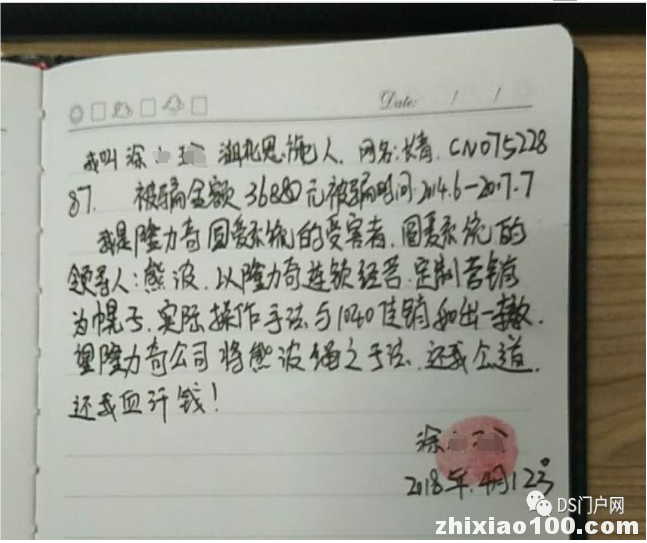 Date: / /
我叫涂 湖北恩施人. 网名:长青. CN075228
87. 被骗金额36880元被骗时间2014.6-2017.7
我是隆力奇圆爱系统的受害者.圆爱系统的
领导人:熊波.以隆力奇连锁经营.定制营销
为幌子.实际操作手法与1040传销如出一辙.
望隆力奇公司将熊波绳之于法.还我公道.
还我血汗钱!
涂
2018年.4月12号
DS门户网
zhixiao100.com